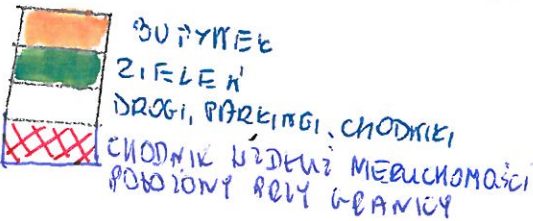 BUDYNEK
ZIELEŃ
DROGI, PARKINGI, CHODNIKI
CHODNIK WZDŁUŻ NIERUCHOMOŚCI
POŁOŻONY PRZY GRANICY